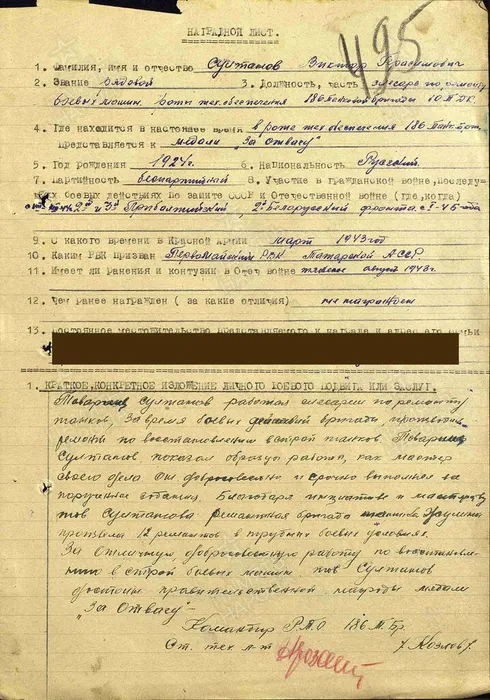 495
НАГРАДНОЙ ЛИСТ.
1. Фамилия, имя и отчество Султанов Виктор
2. Звание рядовой 3. Должность, часть слесарь по ремонту
боевых машин роты тех.обеспечения 186 танковой бригады 10 ТДК.
4. Где находится в настоящее время в роте тех обеспечения 186 танк.бриг.
Представляется к медали "За Отвагу"
5. Год рождения 1924г. 6. Национальность Русский.
7. Партийность беспартийный 8. Участие в гражданской войне, последую-
щих боевых действиях по защите СССР и Отечественной войне (где, когда)
2й и 3й Прибалтийский, 2й Белорусский фронта с 1-45 года
9. С какого времени в Красной Армии март 1943 год
10. Каким РВК призван Первомайским РВК Татарской АССР
11. Имеет ли ранения и контузии в Отеч войне тяжелое август 1943г.
12. Чем ранее награжден ( за какие отличия) не награжден
13. постоянное местожительство представляемого к награде и адрес его семьи
1. КРАТКОЕ, КОНКРЕТНОЕ ИЗЛОЖЕНИЕ ЛИЧНОГО БОЕВОГО ПОДВИГА ИЛИ ЗАСЛУГ.
Товарищ Султанов работая слесарем по ремонту
танков, за время боевых действий бригады,
ремонты по восстановлению в строй танков. Товарищ
Султанов показал образцы работы, как мастер
своего дела. Он добросовестно и срочно выполнял
порученные задания. Благодаря инициативе и мастерству
тов Султанова ремонтная бригада
произвела 12 ремонтов в трудных боевых условиях.
За Отличную добросовестную работу по восстановле-
нию в строй боевых машин тов Султанов
достоин правительственной награды медали
"За Отвагу" -
Командир Р.Т.О 186 Т.Бр.
Ст. тех л-т /Козлов/.